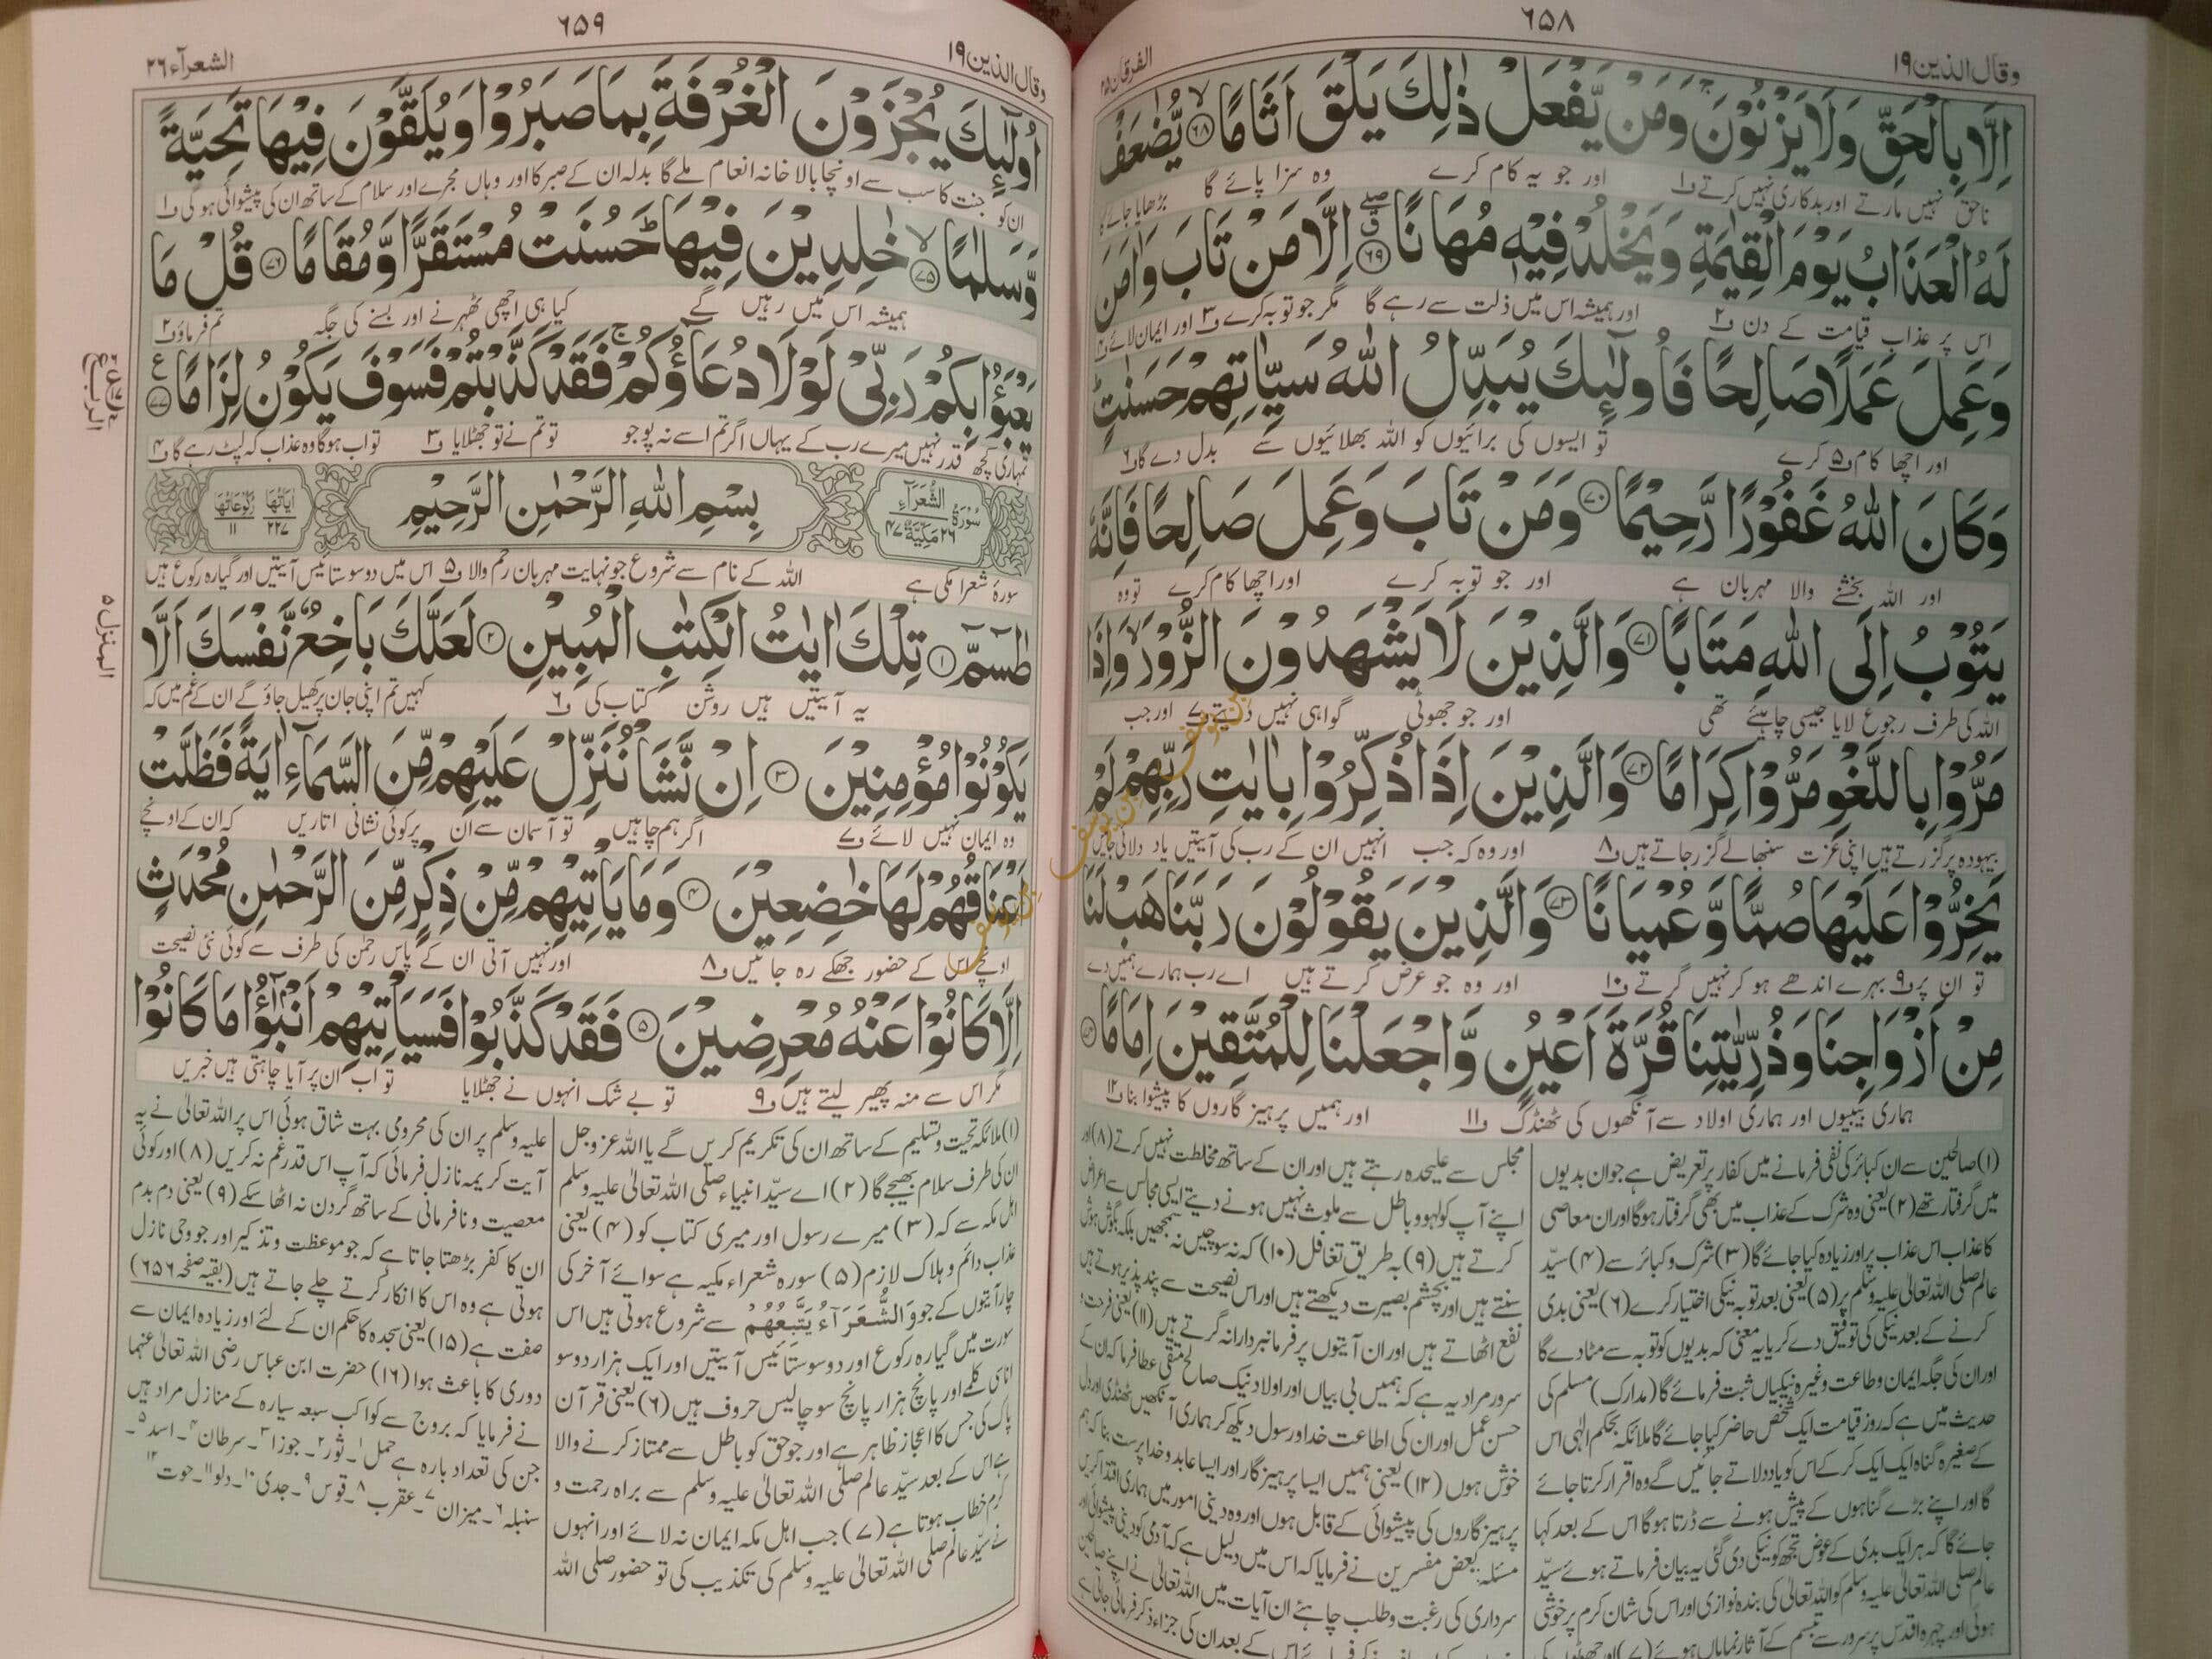 ۶۵۸
وقال الذین ۱۹
الفرقان ۲۵
اِلَّا بِالْحَقِّ وَلَا يَزْنُوْنَ ۚ وَمَنْ يَّفْعَلْ ذٰلِكَ يَلْقَ اَثَامًا ۙ﴿۶۸﴾ يُّضٰعَفْ
ناحق نہیں مارتے اور بدکاری نہیں کرتے ف۱ اور جو یہ کام کرے وہ سزا پائے گا بڑھایا جائے گا
لَهُ الْعَذَابُ يَوْمَ الْقِيٰمَةِ وَيَخْلُدْ فِيْهٖ مُهَانًا ﴿۶۹﴾ اِلَّا مَنْ تَابَ وَاٰمَنَ
اس پر عذاب قیامت کے دن ف۲ اور ہمیشہ اس میں ذلت سے رہے گا مگر جو توبہ کرے ف۳ اور ایمان لائے ف۴
وَعَمِلَ عَمَلًا صَالِحًا فَاُولٰٓئِكَ يُبَدِّلُ اللّٰهُ سَيِّاٰتِهِمْ حَسَنٰتٍ ؕ
اور اچھا کام ف۵ کرے تو ایسوں کی برائیوں کو اللہ بھلائیوں سے بدل دے گا ف۶
وَكَانَ اللّٰهُ غَفُوْرًا رَّحِيْمًا ﴿۷۰﴾ وَمَنْ تَابَ وَعَمِلَ صَالِحًا فَاِنَّهٗ
اور اللہ بخشنے والا مہربان ہے اور جو توبہ کرے اور اچھا کام کرے تو وہ
يَتُوْبُ اِلَى اللّٰهِ مَتَابًا ﴿۷۱﴾ وَالَّذِيْنَ لَا يَشْهَدُوْنَ الزُّوْرَ ۙ وَاِذَا
اللہ کی طرف رجوع لایا جیسی چاہیئے تھی اور جو جھوٹی گواہی نہیں دیتے ف۷ اور جب
مَرُّوْا بِاللَّغْوِ مَرُّوْا كِرَامًا ﴿۷۲﴾ وَالَّذِيْنَ اِذَا ذُكِّرُوْا بِاٰيٰتِ رَبِّهِمْ لَمْ
بیہودہ پر گزرتے ہیں اپنی عزت سنبھالے گزر جاتے ہیں ف۸ اور وہ کہ جب انہیں ان کے رب کی آیتیں یاد دلائی جائیں
يَخِرُّوْا عَلَيْهَا صُمًّا وَّعُمْيَانًا ﴿۷۳﴾ وَالَّذِيْنَ يَقُوْلُوْنَ رَبَّنَا هَبْ لَنَا
تو ان پر ف۹ بہرے اندھے ہو کر نہیں گرتے ف۱۰ اور وہ جو عرض کرتے ہیں اے رب ہمارے ہمیں دے
مِنْ اَزْوَاجِنَا وَذُرِّيّٰتِنَا قُرَّةَ اَعْيُنٍ وَّاجْعَلْنَا لِلْمُتَّقِيْنَ اِمَامًا ﴿۷۴﴾
ہماری بیبیوں اور ہماری اولاد سے آنکھوں کی ٹھنڈک ف۱۱ اور ہمیں پرہیزگاروں کا پیشوا بنا ف۱۲
(۱) صالحین سے ان کبائر کی نفی فرمانے میں کفار پر تعریض ہے جو ان بدیوں
میں گرفتار تھے (۲) یعنی وہ شرک کے عذاب میں بھی گرفتار ہوگا اور ان معاصی
کا عذاب اس عذاب پر اور زیادہ کیا جائے گا (۳) شرک و کبائر سے (۴) سیّد
عالم صلی اللہ تعالیٰ علیہ وسلم پر (۵) یعنی بعد توبہ نیکی اختیار کرے (۶) یعنی بدی
کرنے کے بعد نیکی کی توفیق دے کر یا یہ معنی کہ بدیوں کو توبہ سے مٹا دے گا
اور ان کی جگہ ایمان و طاعت وغیرہ نیکیاں ثبت فرمائے گا (مدارک) مسلم کی
حدیث میں ہے کہ روز قیامت ایک شخص حاضر کیا جائے گا ملائکہ بحکم الٰہی اس
کے صغیرہ گناہ ایک ایک کرکے اس کو یاد دلاتے جائیں گے وہ اقرار کرتا جائے
گا اور اپنے بڑے گناہوں کے پیش ہونے سے ڈرتا ہوگا اس کے بعد کہا
جائے گا کہ ہر ایک بدی کے عوض تجھ کو نیکی دی گئی یہ بیان فرماتے ہوئے سیّد
عالم صلی اللہ تعالیٰ علیہ وسلم کو اللہ تعالیٰ کی بندہ نوازی اور اس کی شان کرم پر خوشی
ہوئی اور چہرہ اقدس پر سرور سے تبسم کے آثار نمایاں ہوئے (۷) اور
مجلس سے علیحدہ رہتے ہیں اور ان کے ساتھ مخالطت نہیں کرتے (۸) اور
اپنے آپ کو لہو و باطل سے ملوث نہیں ہونے دیتے ایسی مجالس سے اعراض
کرتے ہیں (۹) بہ طریق تغافل (۱۰) کہ نہ سوچیں نہ سمجھیں بلکہ بگوش ہوش
سنتے ہیں اور بچشم بصیرت دیکھتے ہیں اور اس نصیحت سے پند پذیر ہوتے ہیں
نفع اٹھاتے ہیں اور ان آیتوں پر فرمانبردارانہ گرتے ہیں (۱۱) یعنی فرحت و
سرور مراد یہ ہے کہ ہمیں بی بیاں اور اولاد نیک صالح متقی عطا فرما کہ ان کے
حسن عمل اور ان کی اطاعت خدا و رسول دیکھ کر ہماری آنکھیں ٹھنڈی اور دل
خوش ہوں (۱۲) یعنی ہمیں ایسا پرہیزگار اور ایسا عابد و خدا پرست بنا کہ ہم
پرہیزگاروں کی پیشوائی کے قابل ہوں اور وہ دینی امور میں ہماری اقتدا کریں
مسئلہ: بعض مفسرین نے فرمایا کہ اس میں دلیل ہے کہ آدمی کو دینی پیشوائی اور
سرداری کی رغبت و طلب چاہئے ان آیات میں اللہ تعالیٰ نے اپنے صالحین
کے بعد ان کی جزاء ذکر فرمائی جاتی ہے
۶۵۹
وقال الذین ۱۹
الشعرآء ۲۶
اُولٰٓئِكَ يُجْزَوْنَ الْغُرْفَةَ بِمَا صَبَرُوْا وَيُلَقَّوْنَ فِيْهَا تَحِيَّةً
ان کو جنت کا سب سے اونچا بالا خانہ انعام ملے گا بدلہ ان کے صبر کا اور وہاں مجرے اور سلام کے ساتھ ان کی پیشوائی ہوگی ف۱
وَّسَلٰمًا ۙ﴿۷۵﴾ خٰلِدِيْنَ فِيْهَا ؕ حَسُنَتْ مُسْتَقَرًّا وَّمُقَامًا ﴿۷۶﴾ قُلْ مَا
ہمیشہ اس میں رہیں گے کیا ہی اچھی ٹھہرنے اور بسنے کی جگہ تم فرماؤ ف۲
يَعْبَؤُا بِكُمْ رَبِّيْ لَوْلَا دُعَآؤُكُمْ ۚ فَقَدْ كَذَّبْتُمْ فَسَوْفَ يَكُوْنُ لِزَامًا ﴿۷۷﴾
تمہاری کچھ قدر نہیں میرے رب کے یہاں اگر تم اسے نہ پوجو تو تم نے تو جھٹلایا ف۳ تو اب ہوگا وہ عذاب کہ لپٹ رہے گا ف۴
الربع
سُوْرَةُ الشُّعَرَآءِ ۲۶ مَكِّيَّةٌ ۴۷
بِسْمِ اللّٰهِ الرَّحْمٰنِ الرَّحِيْمِ
اٰيَاتُهَا ۲۲۷ رُكُوْعَاتُهَا ۱۱
سورۂ شعرا مکی ہے اللہ کے نام سے شروع جو نہایت مہربان رحم والا ف۵ اس میں دو سو ستائیس آیتیں اور گیارہ رکوع ہیں
المنزل ۵
طٰسٓمّٓ ﴿۱﴾ تِلْكَ اٰيٰتُ الْكِتٰبِ الْمُبِيْنِ ﴿۲﴾ لَعَلَّكَ بَاخِعٌ نَّفْسَكَ اَلَّا
یہ آیتیں ہیں روشن کتاب کی ف۶ کہیں تم اپنی جان پر کھیل جاؤ گے ان کے غم میں کہ
يَكُوْنُوْا مُؤْمِنِيْنَ ﴿۳﴾ اِنْ نَّشَاْ نُنَزِّلْ عَلَيْهِمْ مِّنَ السَّمَآءِ اٰيَةً فَظَلَّتْ
وہ ایمان نہیں لائے ف۷ اگر ہم چاہیں تو آسمان سے ان پر کوئی نشانی اتاریں کہ ان کے اونچے
اَعْنَاقُهُمْ لَهَا خٰضِعِيْنَ ﴿۴﴾ وَمَا يَاْتِيْهِمْ مِّنْ ذِكْرٍ مِّنَ الرَّحْمٰنِ مُحْدَثٍ
اونچے اس کے حضور جھکے رہ جائیں ف۸ اور نہیں آتی ان کے پاس رحمٰن کی طرف سے کوئی نئی نصیحت
اِلَّا كَانُوْا عَنْهُ مُعْرِضِيْنَ ﴿۵﴾ فَقَدْ كَذَّبُوْا فَسَيَاْتِيْهِمْ اَنْۢبٰٓؤُا مَا كَانُوْا
مگر اس سے منہ پھیر لیتے ہیں ف۹ تو بے شک انہوں نے جھٹلایا تو اب ان پر آیا چاہتی ہیں خبریں
(۱) ملائکہ تحیت و تسلیم کے ساتھ ان کی تکریم کریں گے یا اللہ عزوجل
ان کی طرف سلام بھیجے گا (۲) اے سیّد انبیاء صلی اللہ تعالیٰ علیہ وسلم
اہل مکہ سے کہ (۳) میرے رسول اور میری کتاب کو (۴) یعنی
عذاب دائم و ہلاک لازم (۵) سورہ شعراء مکیہ ہے سوائے آخر کی
چار آیتوں کے جو وَالشُّعَرَآءُ يَتَّبِعُهُمُ سے شروع ہوتی ہیں اس
سورت میں گیارہ رکوع اور دو سو ستائیس آیتیں اور ایک ہزار دو سو
اناسی کلمے اور پانچ ہزار پانچ سو چالیس حروف ہیں (۶) یعنی قرآن
پاک کی جس کا اعجاز ظاہر ہے اور جو حق کو باطل سے ممتاز کرنے والا
ہے اس کے بعد سیّد عالم صلی اللہ تعالیٰ علیہ وسلم سے براہ رحمت و
کرم خطاب ہوتا ہے (۷) جب اہل مکہ ایمان نہ لائے اور انہوں
نے سیّد عالم صلی اللہ تعالیٰ علیہ وسلم کی تکذیب کی تو حضور صلی اللہ
علیہ وسلم پر ان کی محرومی بہت شاق ہوئی اس پر اللہ تعالیٰ نے یہ
آیت کریمہ نازل فرمائی کہ آپ اس قدر غم نہ کریں (۸) اور کوئی
معصیت و نافرمانی کے ساتھ گردن نہ اٹھا سکے (۹) یعنی دم بدم
ان کا کفر بڑھتا جاتا ہے کہ جو موعظت و تذکیر اور جو وحی نازل
ہوتی ہے وہ اس کا انکار کرتے چلے جاتے ہیں (بقیہ صفحہ ۶۵۶)
صفت ہے (۱۵) یعنی سجدہ کا حکم ان کے لئے اور زیادہ ایمان سے
دوری کا باعث ہوا (۱۶) حضرت ابن عباس رضی اللہ تعالیٰ عنہما
نے فرمایا کہ بروج سے کواکب سبعہ سیارہ کے منازل مراد ہیں
جن کی تعداد بارہ ہے حمل۱۔ ثور۲۔ جوزا۳۔ سرطان۴۔ اسد۵۔
سنبلہ۶۔ میزان۷۔ عقرب۸۔ قوس۹۔ جدی۱۰۔ دلو۱۱۔ حوت۱۲